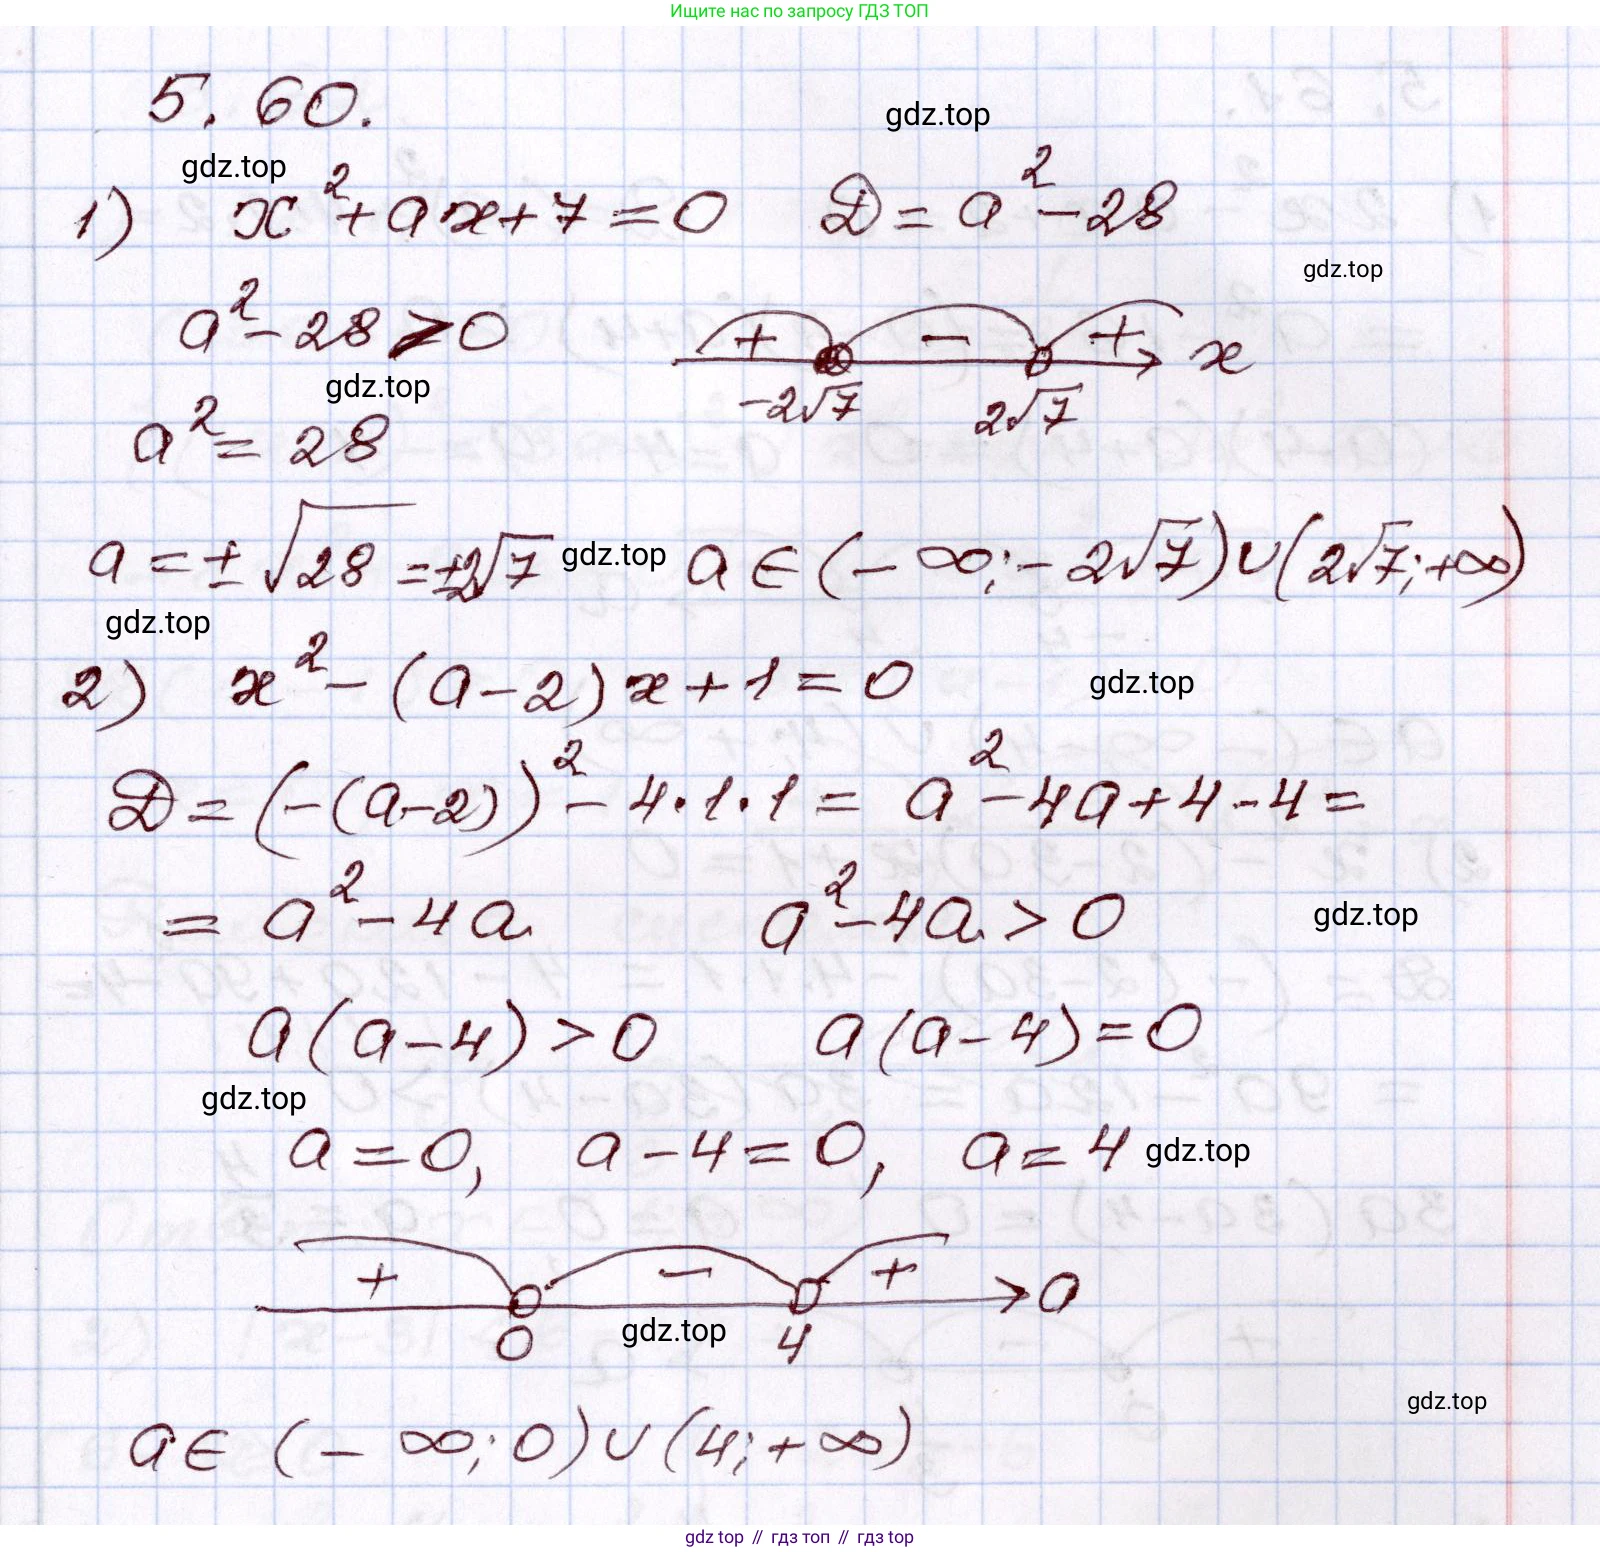 Ищите нас по запросу ГДЗ ТОП
5.60.
gdz.top
gdz.top
1) x² + ax + 7 = 0 D = a² - 28
gdz.top
a² - 28 > 0
+ - + x
-2√7 2√7
gdz.top
a² = 28
a = ± √28 = ±2√7 gdz.top a ∈ (-∞; -2√7) ∪ (2√7; +∞)
gdz.top
2) x² - (a-2)x + 1 = 0 gdz.top
D = (-(a-2))² - 4·1·1 = a² - 4a + 4 - 4 =
= a² - 4a a² - 4a > 0 gdz.top
a(a-4) > 0 a(a-4) = 0
gdz.top
a = 0, a - 4 = 0, a = 4 gdz.top
+ - + a
0 gdz.top 4
gdz.top
a ∈ (-∞; 0) ∪ (4; +∞)
gdz top // гдз топ // гдз top